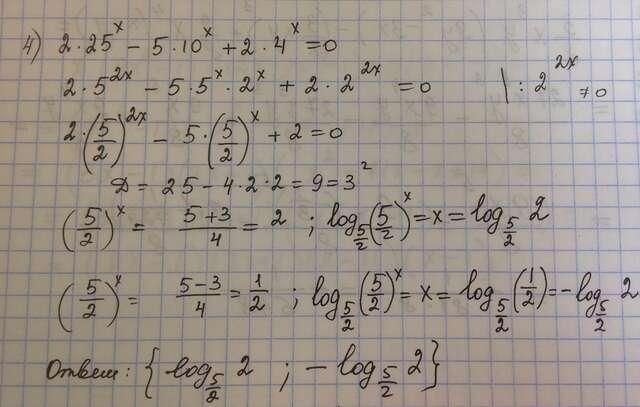 4) 2·25^x − 5·10^x + 2·4^x = 0
2·5^(2x) − 5·5^x·2^x + 2·2^(2x) = 0 | : 2^(2x) ≠ 0
2·(5/2)^(2x) − 5·(5/2)^x + 2 = 0
D = 25 − 4·2·2 = 9 = 3^2
(5/2)^x = (5+3)/4 = 2 ; log_(5/2) (5/2)^x = x = log_(5/2) 2
(5/2)^x = (5−3)/4 = 1/2 ; log_(5/2) (5/2)^x = x = log_(5/2) (1/2) = −log_(5/2) 2
Ответ: {log_(5/2) 2 ; − log_(5/2) 2}